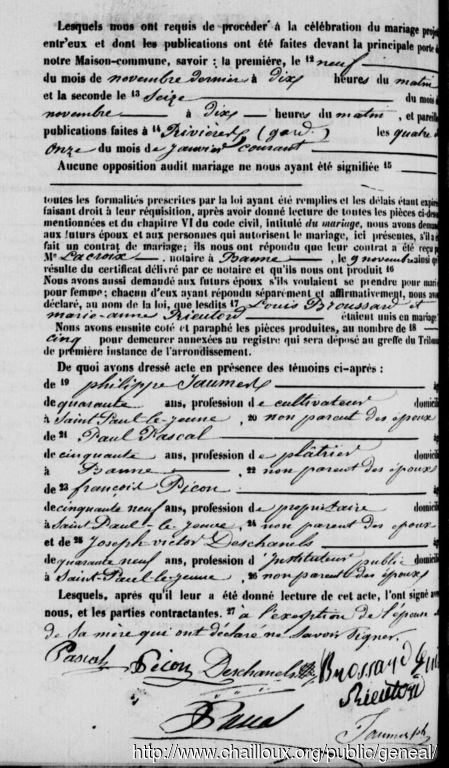 Lesquels nous ont requis de procéder à la célébration du mariage proje
entr'eux et dont les publications ont été faites devant la principale porte d
notre Maison-commune, savoir : la première, le 12 neuf
du mois de novembre dernier à dix heures du matin
et la seconde le 13 Seize du mois d
novembre à dix heures du matin, et pareille
publications faites à 14 Rivières (gard.) les quatre &
Onze du mois de janvier courant
Aucune opposition audit mariage ne nous ayant été signifiée 15
toutes les formalités prescrites par la loi ayant été remplies et les délais étant expiré
faisant droit à leur réquisition, après avoir donné lecture de toutes les pièces ci-dessu
mentionnées et du chapitre VI du code civil, intitulé du mariage, nous avons deman
aux futurs époux et aux personnes qui autorisent le mariage, ici présentes, s'il a é
fait un contrat de mariage; ils nous ont répondu que leur contrat a été reçu p
Me Lacroix, notaire à Banne, le 9 novembre ainsi qu'
résulte du certificat délivré par ce notaire et qu'ils nous ont produit 16
Nous avons aussi demandé aux futurs époux s'ils voulaient se prendre pour mari
pour femme; chacun d'eux ayant répondu séparément et affirmativement, nous avo
déclaré, au nom de la loi, que lesdits 17 Louis Broussard &
marie-anne Rieutord étaient unis en mariage
Nous avons ensuite coté et paraphé les pièces produites, au nombre de 18
cinq pour demeurer annexées au registre qui sera déposé au greffe du Tribuna
de première instance de l'arrondissement.
De quoi avons dressé acte en présence des témoins ci-après :
de 19 philippe Jaumes âg
de quarante ans, profession de cultivateur domicili
à Saint-Paul-le-jeune, 20 non parent des époux
de 21 Paul Pascal âg
de cinquante ans, profession de plâtrier domicili
à Banne, 22 non parent des époux
de 23 françois Picon âg
de cinquante neuf ans, profession de propriétaire domicili
à Saint-Paul-le-jeune, 24 non parent des époux
et de 25 Joseph-victor Deschanels âg
de quarante neuf ans, profession d'Instituteur public domicili
à Saint-Paul-le-jeune, 26 non parent des époux
Lesquels, après qu'il leur a été donné lecture de cet acte, l'ont signé ave
nous, et les parties contractantes. 27 à l'exception de l'épouse &
de sa mère qui ont déclaré ne savoir signer.
Pascal Picon Deschanels Brossard
Rieutord
http://www.chailloux.org/public/geneal/